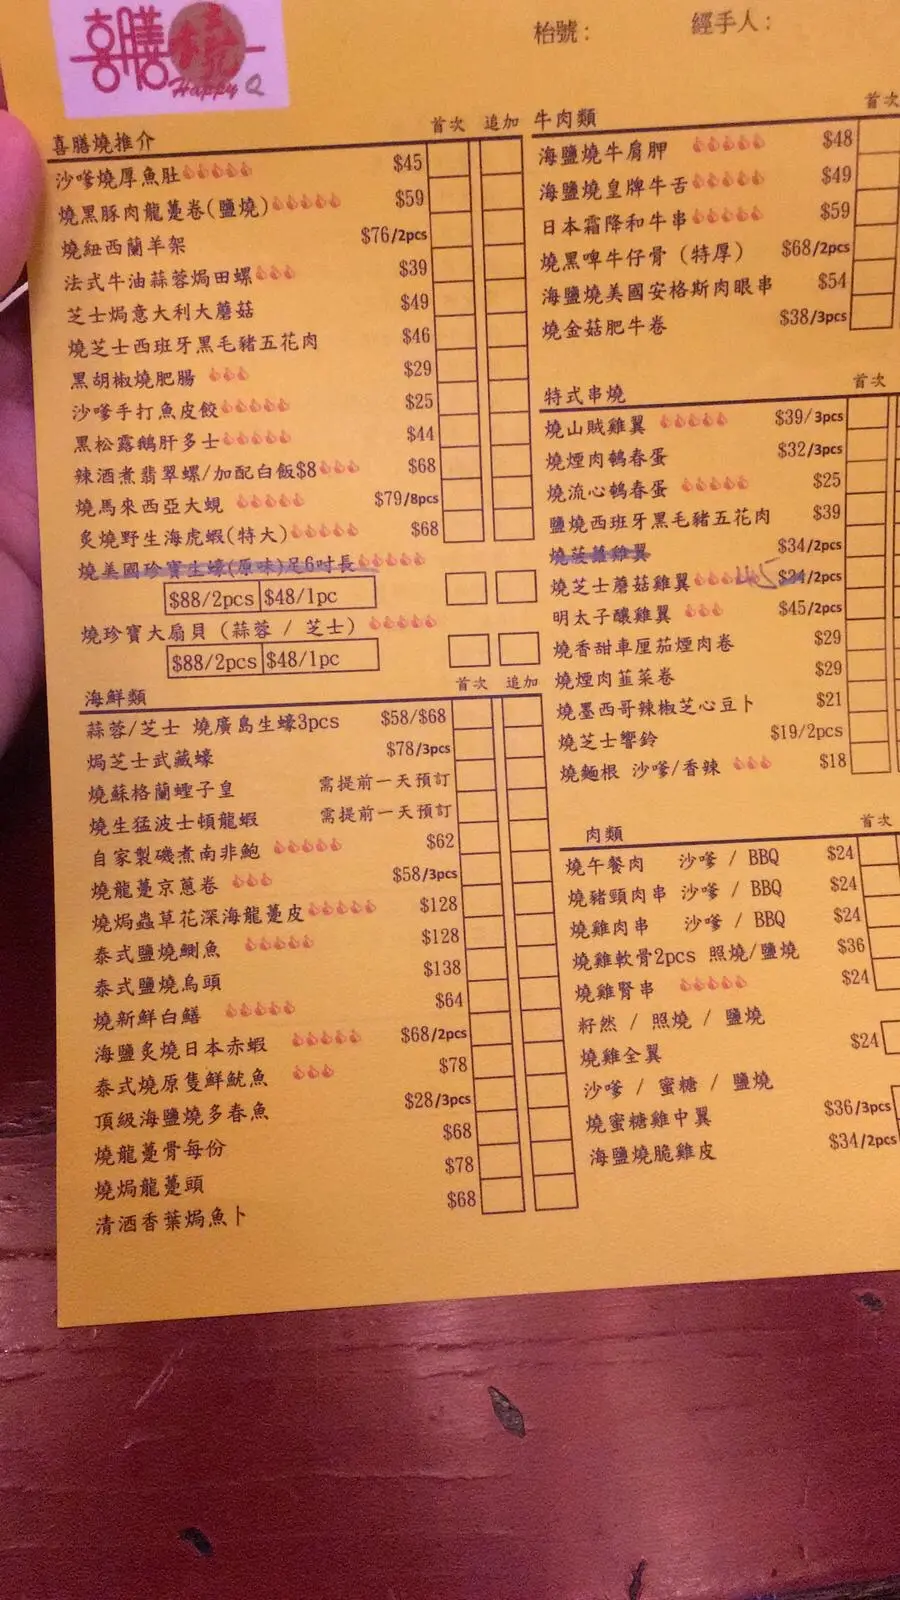 喜膳燒
Happy Q
枱號：
經手人：
喜膳燒推介 首次 追加
沙嗲燒厚魚肚 $45
燒黑豚肉龍躉卷(鹽燒) $59
燒紐西蘭羊架 $76/2pcs
法式牛油蒜蓉焗田螺 $39
芝士焗意大利大蘑菇 $49
燒芝士西班牙黑毛豬五花肉 $46
黑胡椒燒肥腸 $29
沙嗲手打魚皮餃 $25
黑松露鵝肝多士 $44
辣酒煮翡翠螺/加配白飯$8 $68
燒馬來西亞大蜆 $79/8pcs
炙燒野生海虎蝦(特大) $68
燒美國珍寶生蠔(原味)足6吋長
$88/2pcs $48/1pc
燒珍寶大扇貝 (蒜蓉 / 芝士)
$88/2pcs $48/1pc
海鮮類 首次 追加
蒜蓉/芝士 燒廣島生蠔3pcs $58/$68
焗芝士武藏蠔 $78/3pcs
燒蘇格蘭蟶子皇 需提前一天預訂
燒生猛波士頓龍蝦 需提前一天預訂
自家製磯煮南非鮑 $62
燒龍躉京蔥卷 $58/3pcs
燒焗蟲草花深海龍躉皮 $128
泰式鹽燒鰂魚 $128
泰式鹽燒烏頭 $138
燒新鮮白鱔 $64
海鹽炙燒日本赤蝦 $68/2pcs
泰式燒原隻鮮魷魚 $78
頂級海鹽燒多春魚 $28/3pcs
燒龍躉骨每份 $68
燒焗龍躉頭 $78
清酒香葉焗魚卜 $68
牛肉類 首次
海鹽燒牛肩胛 $48
海鹽燒皇牌牛舌 $49
日本霜降和牛串 $59
燒黑啤牛仔骨 (特厚) $68/2pcs
海鹽燒美國安格斯肉眼串 $54
燒金菇肥牛卷 $38/3pcs
特式串燒 首次
燒山賊雞翼 $39/3pcs
燒煙肉鵪春蛋 $32/3pcs
燒流心鵪春蛋 $25
鹽燒西班牙黑毛豬五花肉 $39
燒菠蘿雞翼 $34/2pcs
燒芝士蘑菇雞翼 45 $34/2pcs
明太子釀雞翼 $45/2pcs
燒香甜車厘茄煙肉卷 $29
燒煙肉韮菜卷 $29
燒墨西哥辣椒芝心豆卜 $21
燒芝士響鈴 $19/2pcs
燒麵根 沙嗲/香辣 $18
肉類 首次
燒午餐肉 沙嗲 / BBQ $24
燒豬頸肉串 沙嗲 / BBQ $24
燒雞肉串 沙嗲 / BBQ $24
燒雞軟骨2pcs 照燒/鹽燒 $36
燒雞腎串 $24
籽然 / 照燒 / 鹽燒
燒雞全翼 $24
沙嗲 / 蜜糖 / 鹽燒
燒蜜糖雞中翼 $36/3pcs
海鹽燒脆雞皮 $34/2pcs